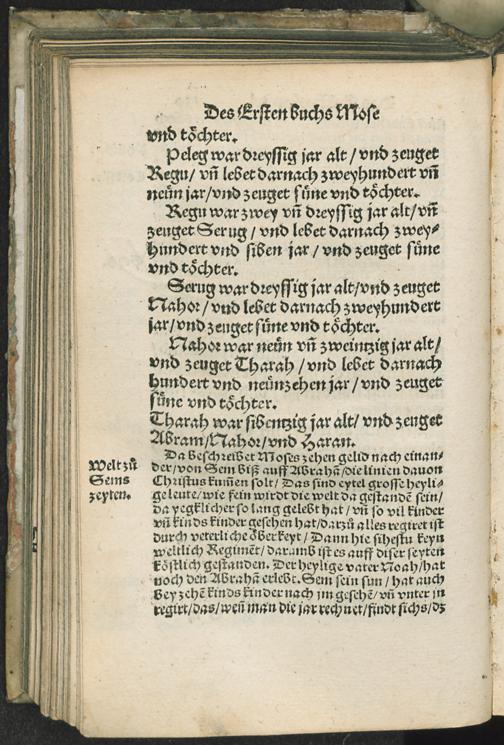 Des Ersten buchs Mose
vnd töchter.
Peleg war dreyssig jar alt / vnd zeuget
Regu / vñ lebet darnach zweyhundert vñ
neün jar/vnd zeuget süne vnd töchter.
Regu war zwey vñ dreyssig jar alt/vñ
zeuget Serug / vnd lebet darnach zwey-
hundert vnd siben jar / vnd zeuget süne
vnd töchter.
Serug war dreyssig jar alt/vnd zeuget
Nahor / vnd lebet darnach zweyhundert
jar/vnd zeuget süne vnd töchter.
Nahor war neün vñ zweintzig jar alt/
vnd zeuget Tharah / vnd lebet darnach
hundert vnd neünzehen jar / vnd zeuget
süne vnd töchter.
Tharah war sibentzig jar alt/ vnd zeuget
Abram/Nahor/vnd Haran.
Da beschreibet Moses zehen gelid nach einan-
der/von Sem biß auff Abrahã/die linien dauon
Christus kum̃en solt / Das sind eytel grosse heyli-
ge leute/wie fein wirdt die welt da gestandẽ sein/
da yegklicher so lang gelebt hat / vñ so vil kinder
vñ kinds kinder gesehen hat/darzů alles regiret ist
durch veterliche öberkeyt / Dann hie sihestu keyn
weltlich Regimẽt/ darumb ist es auff diser seyten
köstlich gestanden. Der heylige vater Noah/hat
noch den Abrahã erlebt. Sem sein sun / hat auch
bey zehẽ kinds kinder nach jm gesehẽ/ vñ vnter jn
regirt/das/weñ man die jar rechnet/findt sichs/dz
Welt zů
Sems
zeyten.